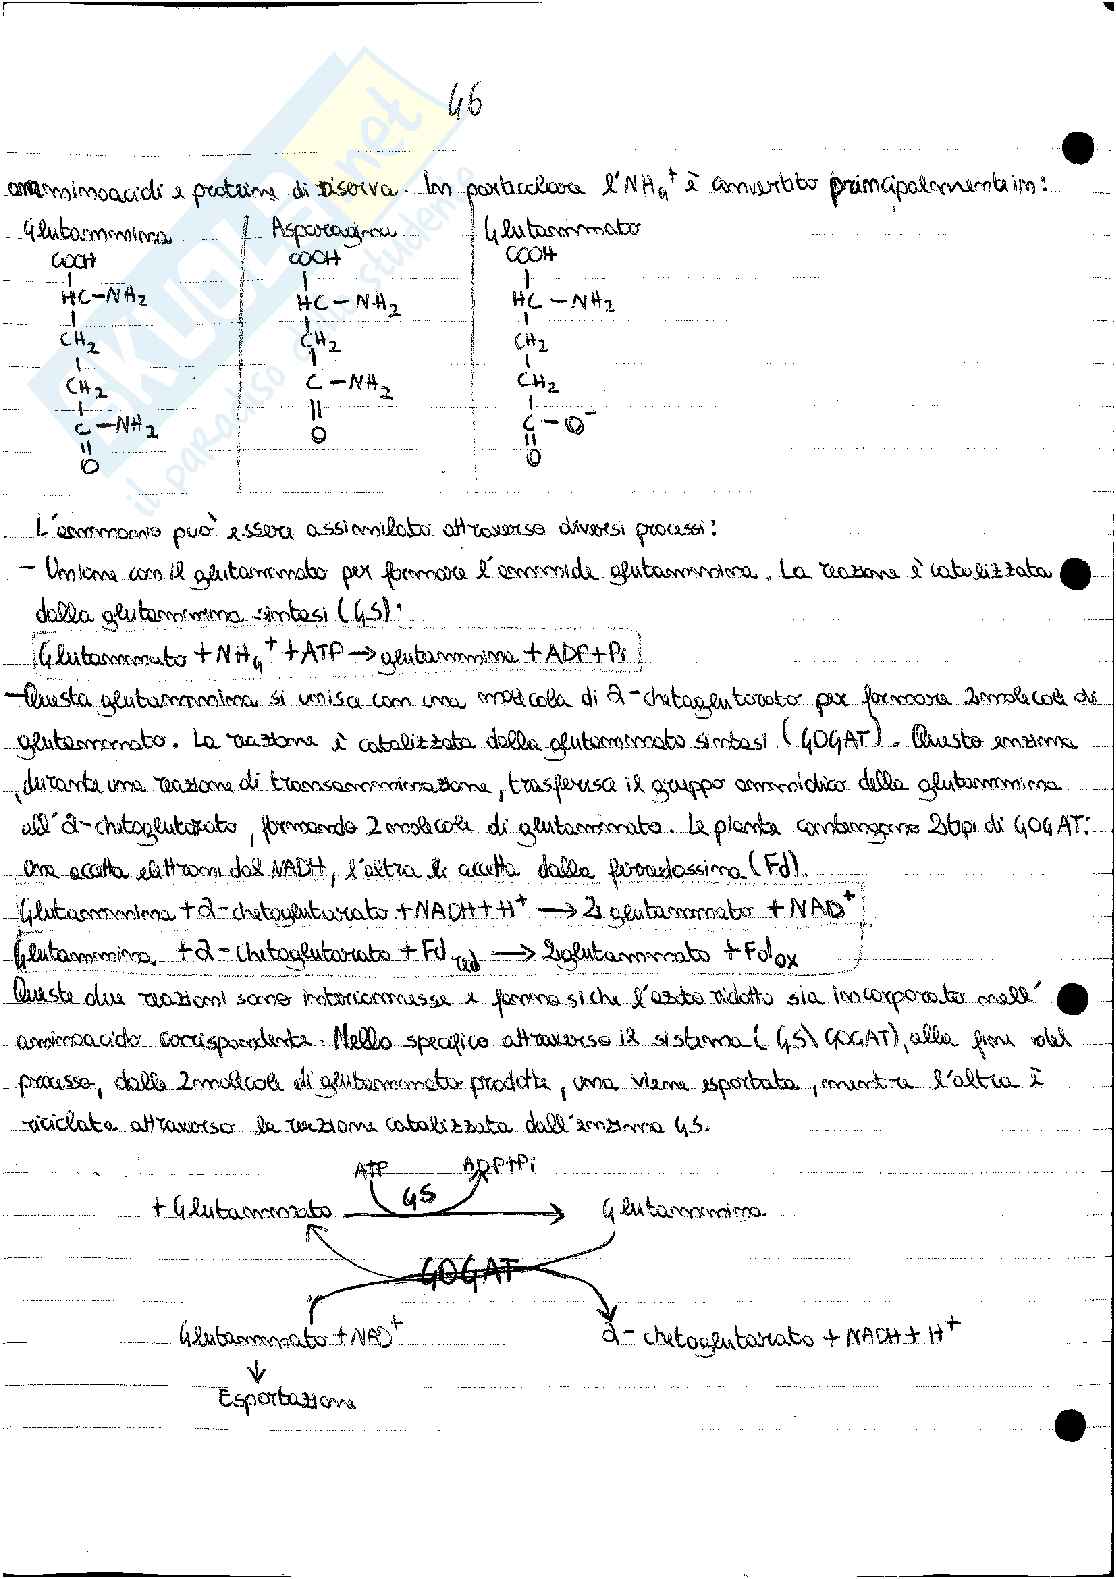 46
amminoacidi e proteine di riserva. In particolare l'NH₄⁺ è convertito principalmente in:
Glutammina Asparagina Glutammato
COOH COOH COOH
HC-NH₂ HC-NH₂ HC-NH₂
CH₂ CH₂ CH₂
CH₂ C-NH₂ CH₂
C-NH₂ O C-O⁻
O O
L'ammonio può essere assimilato attraverso diversi processi:
- Unione con il glutammato per formare l'ammide glutammina. La reazione è catalizzata
dalla glutammina sintasi (GS):
Glutammato + NH₄⁺ + ATP → glutammina + ADP + Pi
- Questa glutammina si unisce con una molecola di α-chetoglutarato per formare 2 molecole di
glutammato. La reazione è catalizzata dalla glutammato sintasi (GOGAT). Questo enzima
, durante una reazione di transamminazione, trasferisce il gruppo ammidico della glutammina
all'α-chetoglutarato, formando 2 molecole di glutammato. Le piante contengono 2 tipi di GOGAT:
una accetta elettroni dal NADH, l'altra li accetta dalla ferredossina (Fd).
Glutammina + α-chetoglutarato + NADH + H⁺ → 2 glutammato + NAD⁺
Glutammina + α-chetoglutarato + Fd red → 2 glutammato + Fd ox
Queste due reazioni sono interconnesse e fanno si che l'azoto ridotto sia incorporato nell'
aminoacido corrispondente. Nello specifico attraverso il sistema (GS\GOGAT), alla fine del
processo, dalle 2 molecole di glutammato prodotte, una viene esportata, mentre l'altra è
riciclata attraverso la reazione catalizzata dall'enzima GS.
ATP ADP+Pi
GS
+ Glutammato Glutammina
GOGAT
Glutammato + NAD⁺ α-chetoglutarato + NADH + H⁺
Esportazione
SKUOLA.net
il paradiso dello studente